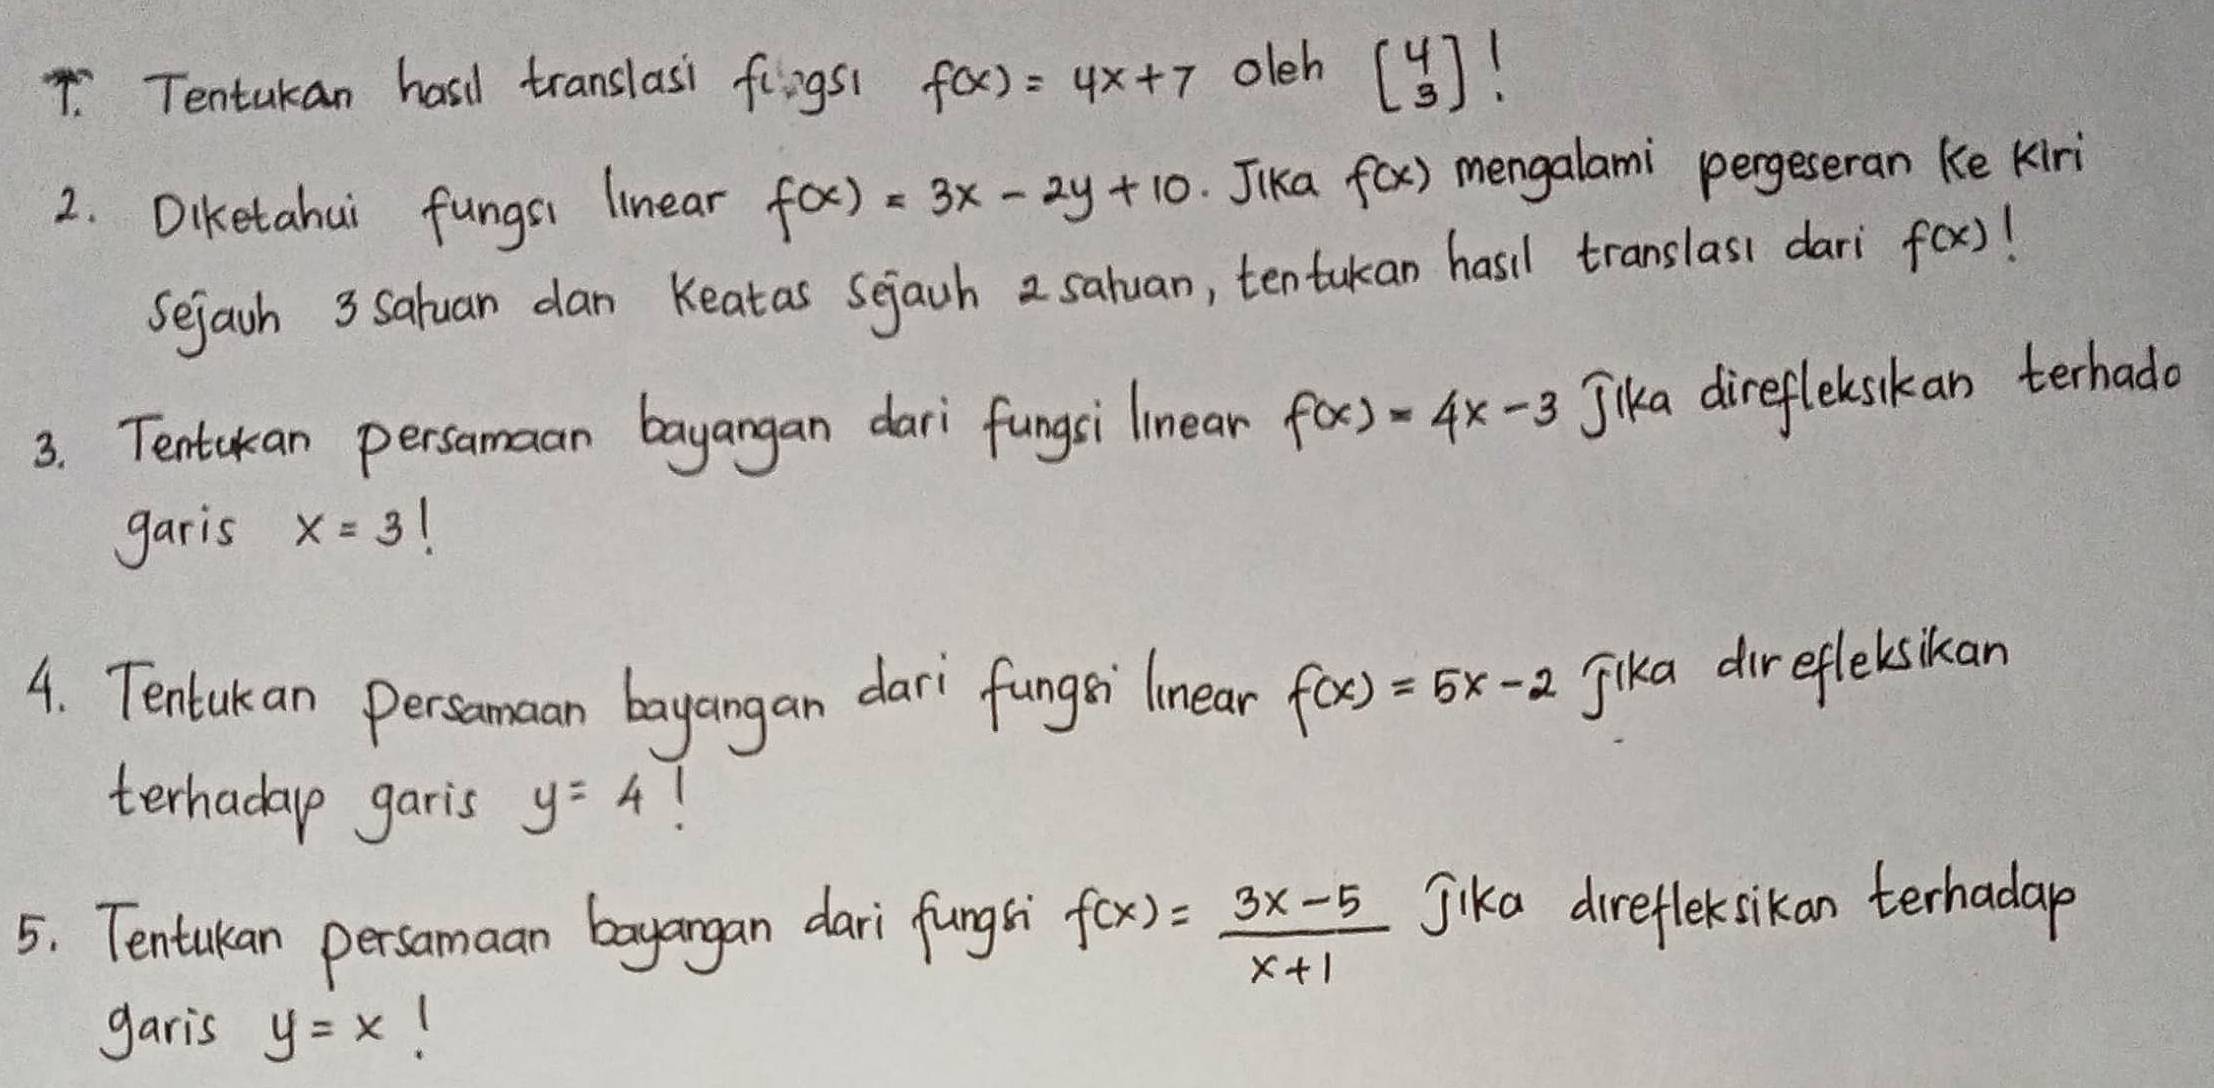 1. Tentukan hasil translasi fungsi f(x) = 4x + 7 oleh [4 3] !
2. Diketahui fungsi linear f(x) = 3x - 2y + 10. Jika f(x) mengalami pergeseran ke kiri
sejauh 3 satuan dan keatas sejauh 2 satuan, tentukan hasil translasi dari f(x)!
3. Tentukan persamaan bayangan dari fungsi linear f(x) = 4x - 3 jika direfleksikan terhada
garis x = 3!
4. Tentukan persamaan bayangan dari fungsi linear f(x) = 5x - 2 jika direfleksikan
terhadap garis y = 4 !
5. Tentukan persamaan bayangan dari fungsi f(x) = (3x - 5)/(x + 1) jika direfleksikan terhadap
garis y = x !